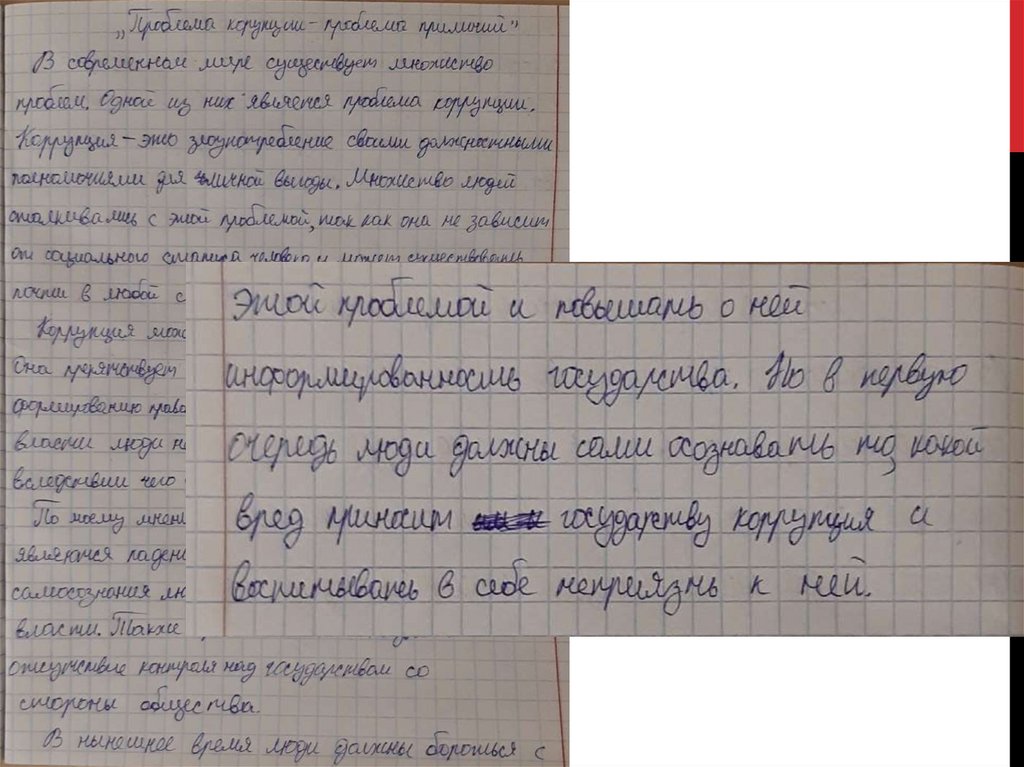 „Проблема корупции - проблема приличий"
В современном мире существует множиство
проблем. Одной из них является проблема коррупции.
Коррупция - это злоупотребление своими должностными
полномочиями для личной выгоды. Множиство людей
сталкивались с этой проблемой, так как она не зависит
от социального статуса человека и может существовать
почти в любой с
Коррупция мож
Она препятствует
формированию право
власти люди н
вследствии чего
По моему мнени
являются падени
самосознания лю
власти. Также
отсутствие контроля над государством со
стороны общества.
В нынешнее время люди должны бороться с
этой проблемой и повышать о ней
информированность государства. Но в первую
очередь люди должны сами осознавать то, какой
вред приносит государству коррупция и
воспитывать в себе неприязнь к ней.